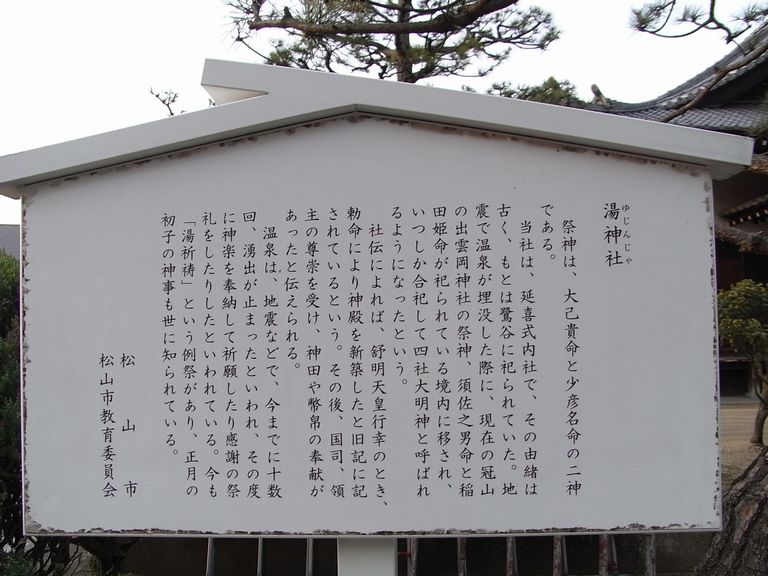 湯神社
ゆじんじゃ
祭神は、大己貴命と少彦名命の二神
である。
当社は、延喜式内社で、その由緒は
古く、もとは鷺谷に祀られていた。地
震で温泉が埋没した際に、現在の冠山
の出雲岡神社の祭神、須佐之男命と稲
田姫命が祀られている境内に移され、
いつしか合祀して四社大明神と呼ばれ
るようになったという。
社伝によれば、舒明天皇行幸のとき、
勅命により神殿を新築したと旧記に記
されているという。その後、国司、領
主の尊崇を受け、神田や幣帛の奉献が
あったと伝えられる。
温泉は、地震などで、今までに十数
回、湧出が止まったといわれ、その度
に神楽を奉納して祈願したり感謝の祭
礼をしたりしたといわれている。今も
「湯祈祷」という例祭があり、正月の
初子の神事も世に知られている。
松山市
松山市教育委員会